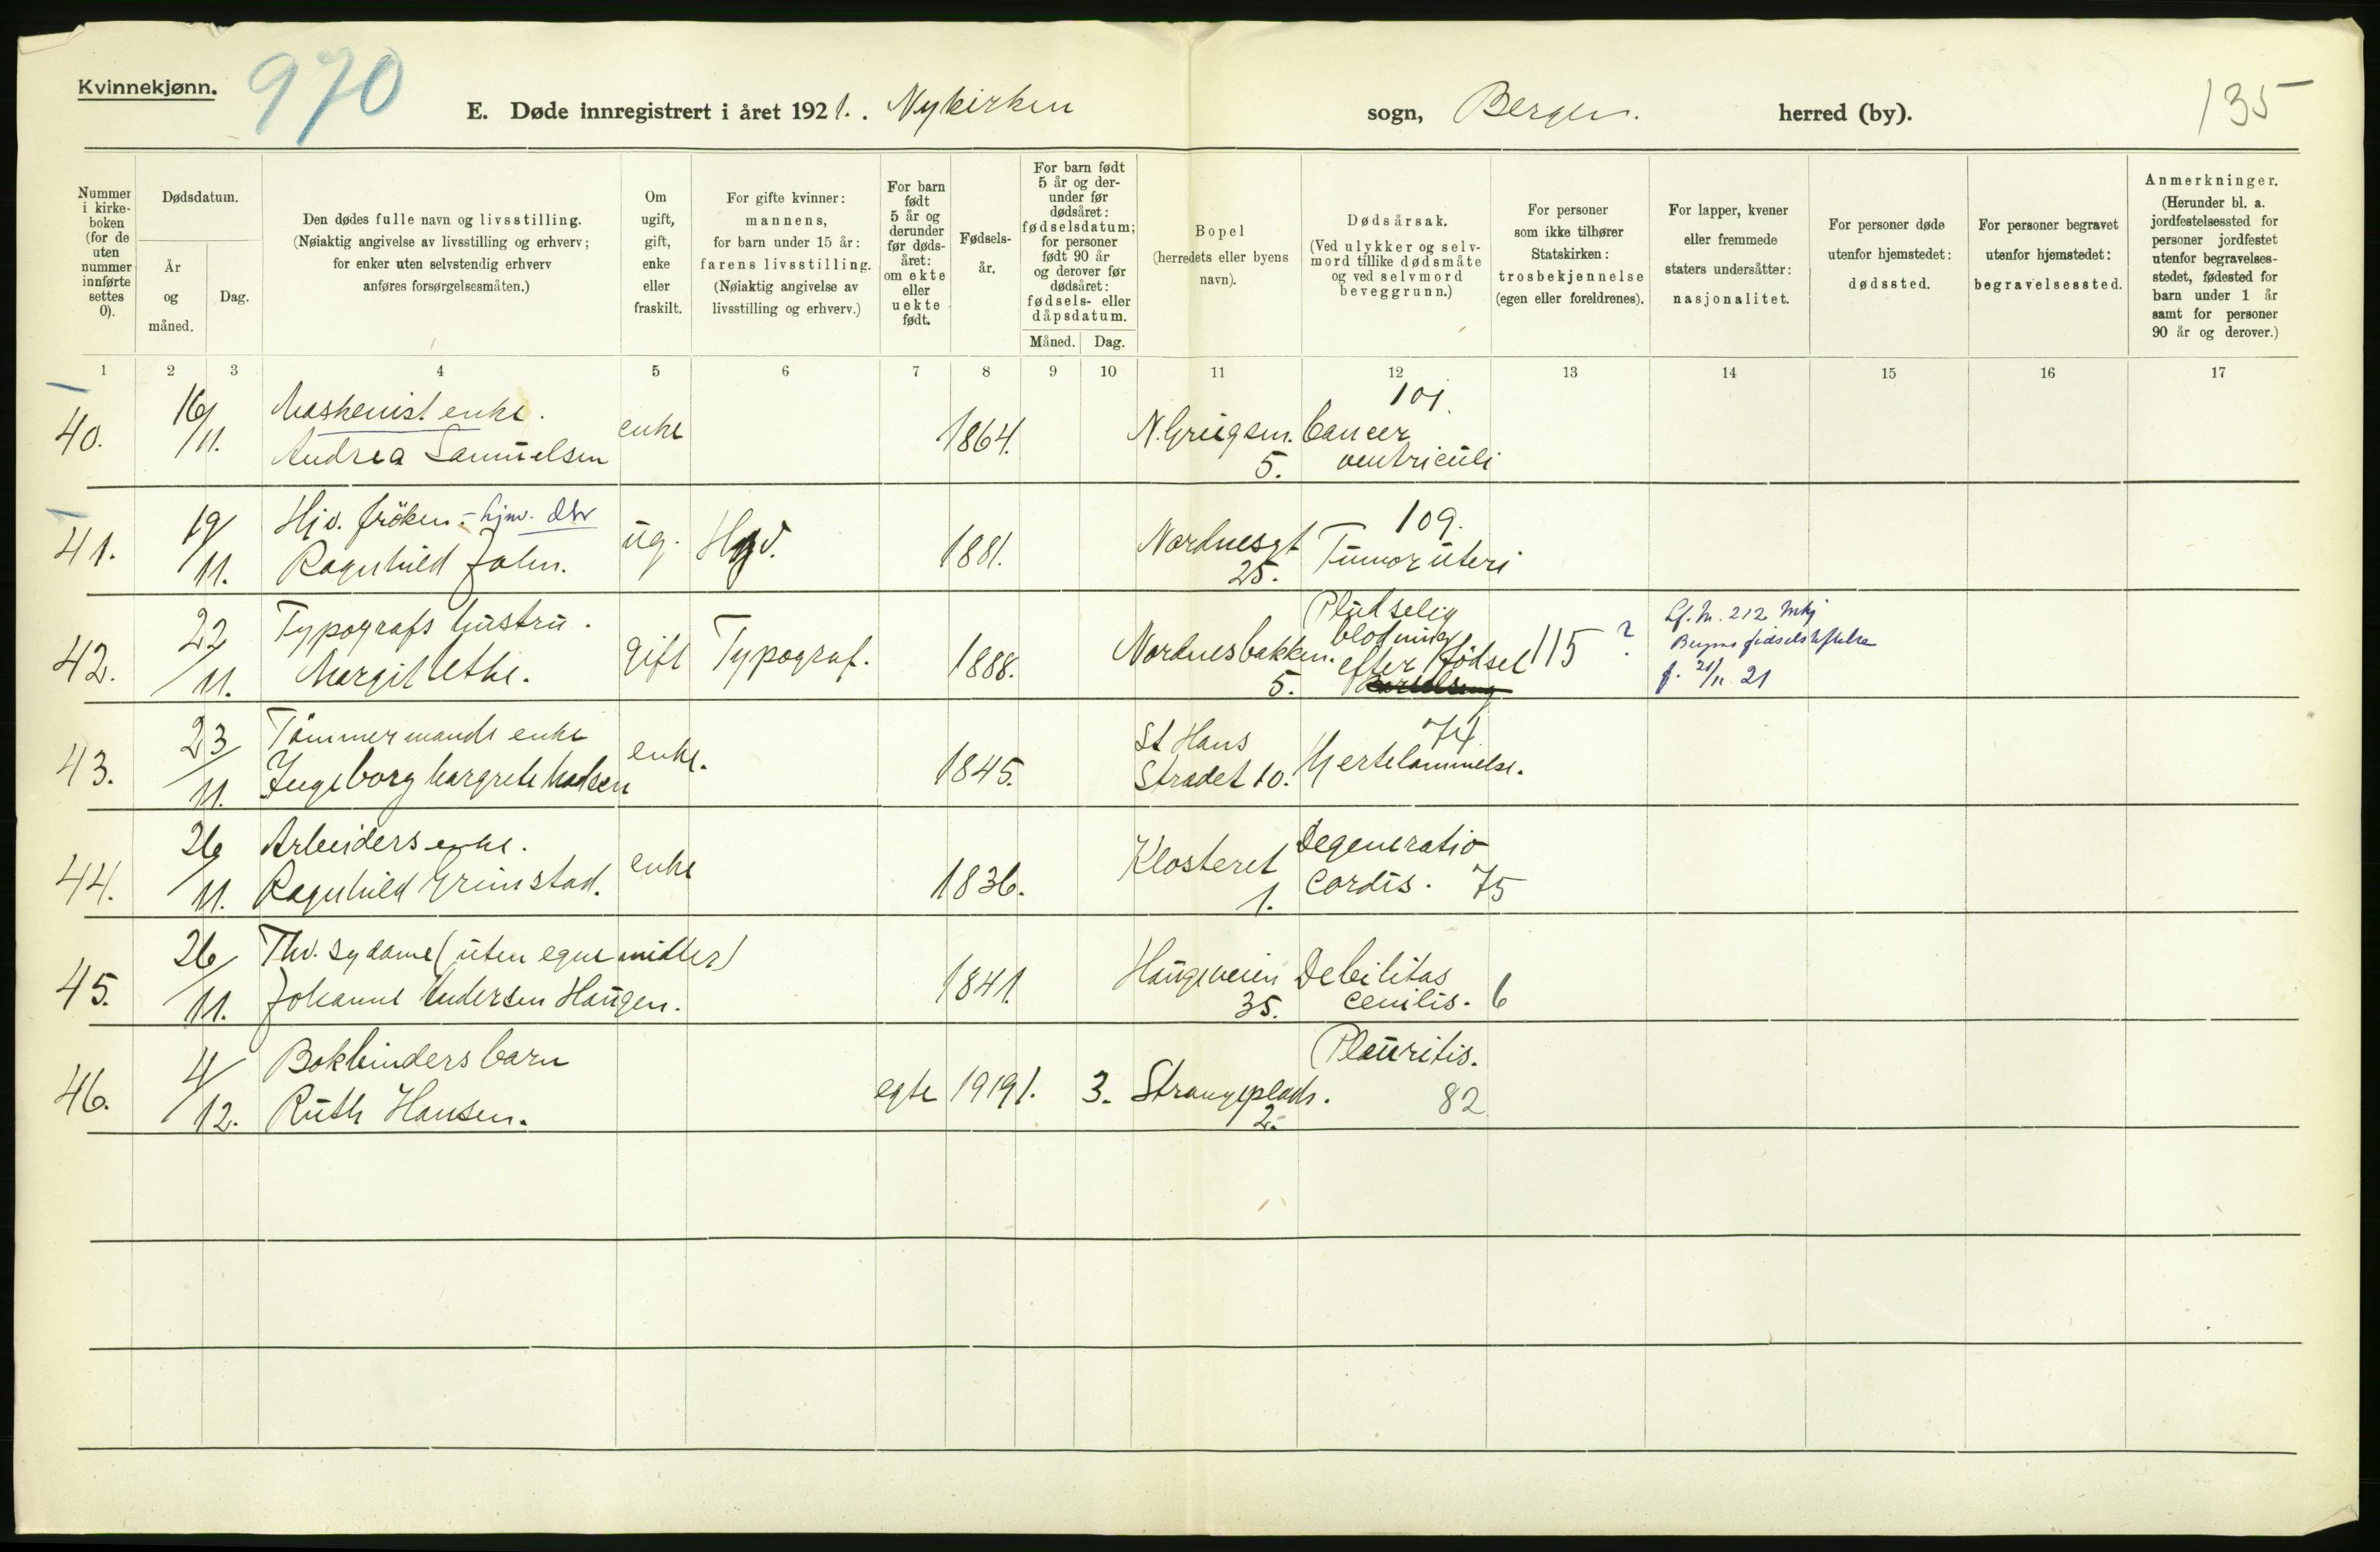 Kvinnekjønn.
970
E. Døde innregistrert i året 1921. Nykirken sogn, Bergen. herred (by).
135
Nummer i kirke-boken (for de uten nummer innførte settes 0).
Dødsdatum.
År og måned.
Dag.
Den dødes fulle navn og livsstilling.
(Nøiaktig angivelse av livsstilling og erhverv;
for enker uten selvstendig erhverv
anføres forsørgelsesmåten.)
Om
ugift,
gift,
enke
eller
fraskilt.
For gifte kvinner:
mannens,
for barn under 15 år:
farens livsstilling.
(Nøiaktig angivelse av
livsstilling og erhverv.)
For barn
født
5 år og
derunder
før døds-
året:
om ekte
eller
uekte
født.
Fødsels-
år.
For barn født
5 år og der-
under før
dødsåret:
fødselsdatum;
for personer
født 90 år
og derover før
dødsåret:
fødsels- eller
dåpsdatum.
Måned. Dag.
Bopel
(herredets eller byens
navn).
Dødsårsak.
(Ved ulykker og selv-
mord tillike dødsmåte
og ved selvmord
beveggrunn.)
For personer
som ikke tilhører
Statskirken:
trosbekjennelse
(egen eller foreldrenes).
For lapper, kvener
eller fremmede
staters undersåtter:
nasjonalitet.
For personer døde
utenfor hjemstedet:
dødssted.
For personer begravet
utenfor hjemstedet:
begravelsessted.
Anmerkninger.
(Herunder bl. a.
jordfestelsessted for
personer jordfestet
utenfor begravelses-
stedet, fødested for
barn under 1 år
samt for personer
90 år og derover.)
1 2 3 4 5 6 7 8 9 10 11 12 13 14 15 16 17
40. 16/11. Maskenist enke.
Andrea Samuelsen
enke
1864.
N. Griegsm.
5.
101.
Cancer
ventriculi
41. 19/11. Hjv. fröken. - hjmv. dtr
Ragnhild John.
ug.
1881.
Nordnesgt
25.
109.
Tumor uteri
42. 22/11. Typografs hustru.
Margit Uthe.
gift
Typograf.
1888.
Nordnesbakken.
5.
Pludselig
blödning
efter födsel
115 ?
Lf. N. 212 Mkj
f. 21/11 21
43. 23/11. Tömmermands enke
Ingeborg Margrete Madsen
enke.
1845.
St Hans
Stradet 10.
74
Hjertelammelse.
44. 26/11. Arbeiders enke.
Ragnhild Grimstad.
enke
1836.
Klosteret
1.
Degeneratio
cordis. 75
45. 26/11. Thv. sydame (uten egne midler)
Johanne Andersen Haugen.
1841.
Haugeveien
35.
Debilitas
cenilis. 6
46. 4/12. Bokbinders barn
Ruth Hansen.
egte
1919
1. 3.
Strangeplads.
2.
Pleuritis.
82